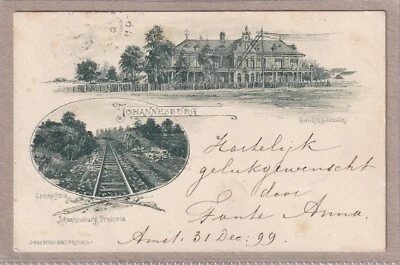 JOHANNESBURG
Johannesburg Pretoria
Hartelijk
gelukgewenscht
door
Tante Anna.
Amst. 31 Dec. 99.